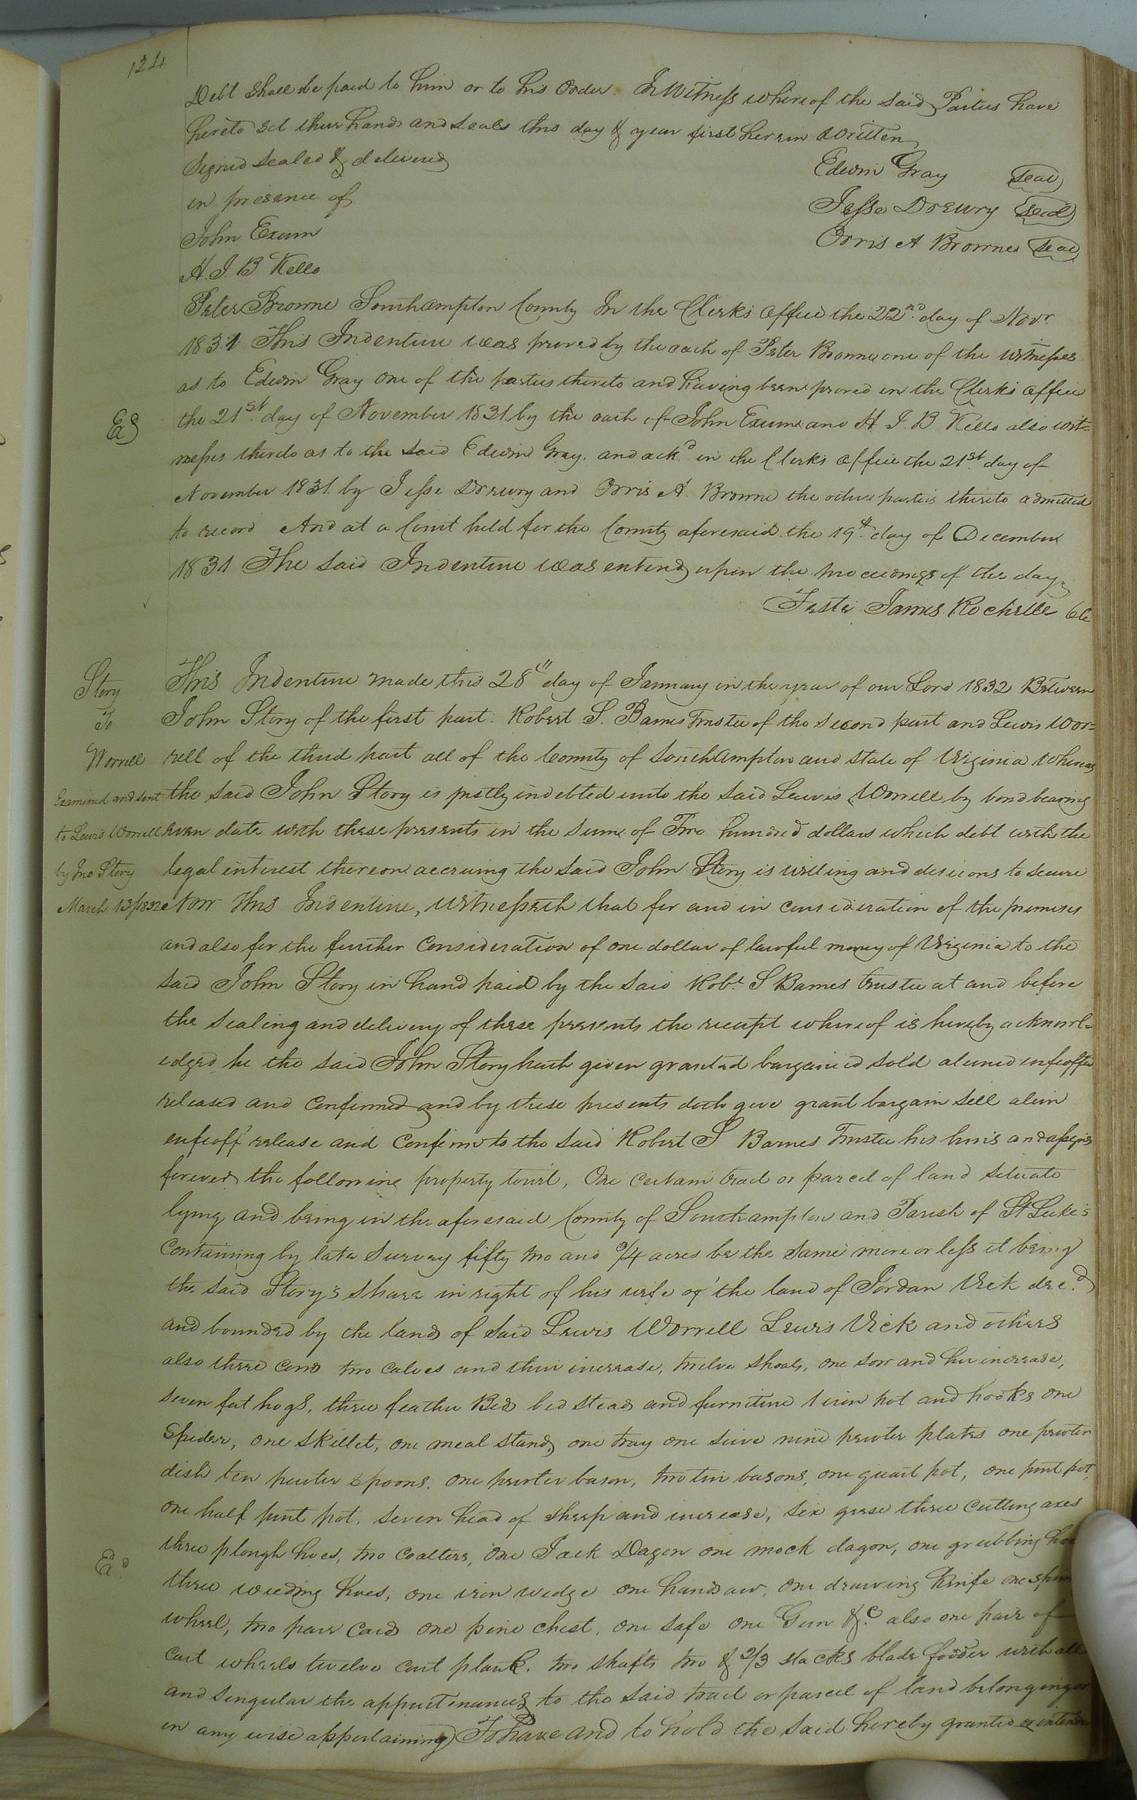 124
Debt shall be paid to him or to his order. In Witness whereof the said Parties have
hereto set their hands and seals this day & year first herein written
Signed sealed & delivered
in presence of
John Exum
H. J. B Kello
Edwin Gray seal
Jesse Drewry seal
Orris A Browne seal
Peter Browne Southampton County In the Clerk's office the 22nd day of Novr
1831 This Indenture was proved by the oath of Peter Browne one of the witnesses
as to Edwin Gray one of the parties thereto and having been proved in the Clerk's office
the 21st day of November 1831 by the oath of John Exum and H. J. B Kello also wit=
nesses thereto as to the said Edwin Gray. and ackd in the Clerk's office the 21st day of
November 1831 by Jesse Drewry and Orris A. Browne the other parties thereto admitted
to record And at a Court held for the County aforesaid the 19th day of December
1831 The said Indenture was entered upon the proceedings of the day.
Teste James Rochelle Clk
Ed
Story
To
Worrell
Examined and sent
to Lewis Worrell
by Jno Story
March 13 1832
This Indenture made this 28th day of January in the year of our Lord 1832 Between
John Story of the first part. Robert S. Barnes Trustee of the second part and Lewis Wor=
rell of the third part all of the County of Southampton and state of Virginia Whereas
the said John Story is justly indebted unto the said Lewis Worrell by bond bearing
even date with these presents in the sum of Two hundred dollars which debt with the
legal interest thereon accruing the said John Story is willing and desirous to secure
Now This Indenture, witnesseth that for and in consideration of the premises
and also for the further consideration of one dollar of lawful money of Virginia to the
said John Story in hand paid by the said Robt S Barnes trustee at and before
the sealing and delivery of these presents the receipt whereof is hereby acknowl=
edged he the said John Story hath given granted bargained sold aliened enfeoffed
released and confirmed and by these presents doth give grant bargain sell alien
enfeoff release and confirm to the said Robert S Barnes Trustee his heirs and assigns
forever, the following property towit, One certain tract or parcel of land situate
lying and being in the aforesaid County of Southampton and Parish of St Luke's
containing by late survey fifty two and 3/4 acres be the same more or less it being
the said Story's share in right of his wife of the land of Jordan Vick decd
and bounded by the lands of said Lewis Worrell Lewis Vick and others
also three cows two calves and their increase, twelve shoats, one sow and her increase,
seven fat hogs, three feather Beds bed steads and furniture 1 iron pot and hooks one
Spider, one skillet, one meal stand, one tray one sieve nine pewter plates one pewter
dish ten pewter spoons, one pewter bason, two tin basons, one quart pot, one pint pot
one half pint pot, seven head of sheep and increase, six geese three cutting axes
three plough hoes, two coalters, one Jack Dagon one mock dagon, one grubbing hoe
three weeding hoes, one iron wedge one handsaw, one drawing knife one
wheel, two pair cards one pine chest, one safe one Gun &c also one pair of
cart wheels twelve cart plank, two shafts two & 2/3 stacks blade fodder with all
and singular the appurtenances to the said tract or parcel of land belonging or
in any wise appertaining To have and to hold the said hereby granted
Ed